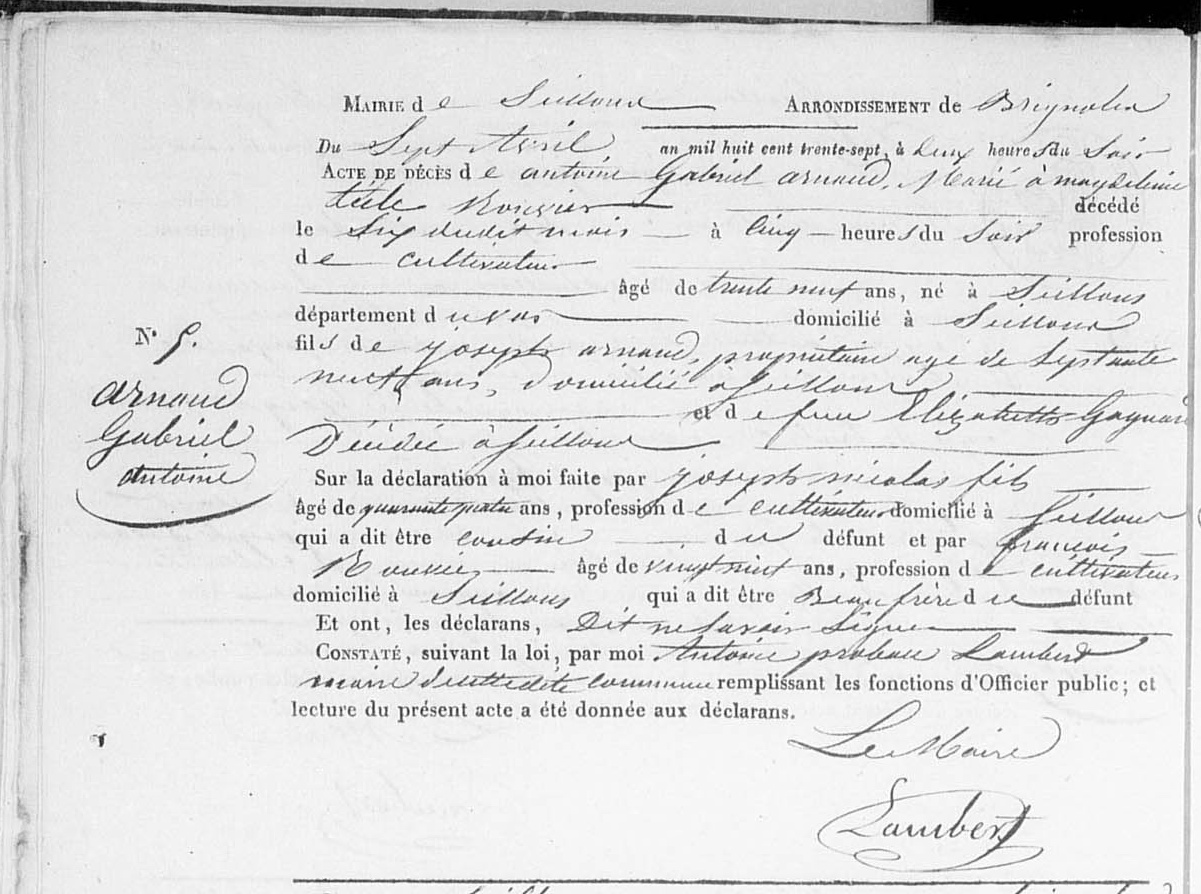 MAIRIE de Seillons ARRONDISSEMENT de Brignoles
Du Sept Avril an mil huit cent trente-sept, à deux heures du Soir
ACTE DE DÉCÈS de antoine Gabriel arnaud, Marié à magdeleine
Rouvier décédé
le Six dudit mois à Cinq heures du Soir profession
de cultivateur
âgé de trente neuf ans, né à Seillons
département du var domicilié à Seillons
N.° 5.
fils de joseph arnaud, propriétaire agé de Septante
neuf ans, domicilié à Seillons
arnaud
et de feue Elizabeth Gaynard
Gabriel
Décédée à Seillons
antoine
Sur la déclaration à moi faite par joseph nicolas fils
âgé de quarante quatre ans, profession de cultivateur domicilié à Seillons
qui a dit être cousin du défunt et par françois
Rouvier âgé de vingt neuf ans, profession de cultivateur
domicilié à Seillons qui a dit être Beau frère du défunt
Et ont, les déclarans, Dit ne Savoir Signer
CONSTATÉ, suivant la loi, par moi Antoine probace Lambert
maire de cette dite commune remplissant les fonctions d'Officier public; et
lecture du présent acte a été donnée aux déclarans.
Le Maire
Lambert